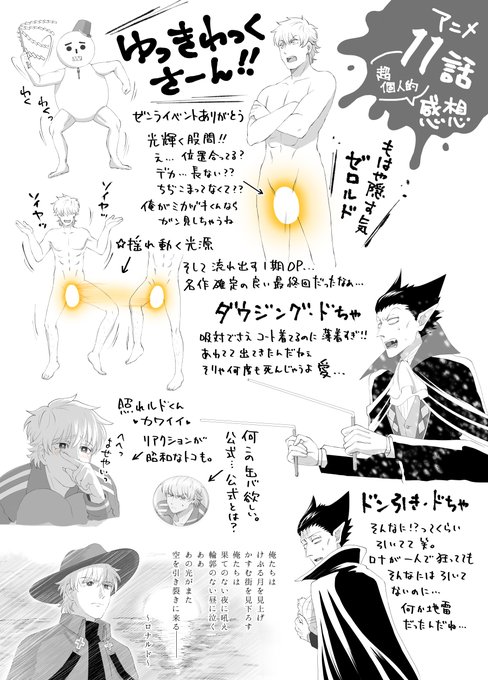 アニメ
11話
超個人的
感想
ゆっきわっく
さーん!!
わくっ
わくっ
ぜんらイベントありがとう
光輝く股間!!
え… 位置合ってる?
デカ… 長ない??
ちぢこまってなくて??
俺がミカヅキくんなら
ガン見しちゃうね
もはや隠す気
ゼロルド
ソイヤッ
ソイヤッ
☆揺れ動く光源
そして流れ出す1期OP…
名作確定の良い最終回だったなぁ…
ダウジング・ドちゃ
吸対でさえコート着てるのに薄着すぎ!!
あわてて出てきたんだねぇ
そりゃ何度も死んじゃうよ 愛…
照れルドくん
♥カワイイ♥
へへっ
リアクションが
昭和なトコも。
何この缶バ欲しい。
公式…公式とは?
ドン引き・ドちゃ
そんなに!?ってくらい
引いてて笑。
ロナが一人で狂ってても
そんなには引いて
ないのに…
何か地雷
だったんだね…
俺たちは
けぶる月を見上げ
かすむ街を見下ろす
果てのない夜に吼え
俺たちは
輪郭のない昼に泣く
ああ
あの光がまた
空を引き裂きに来る――
〜ロナルド〜